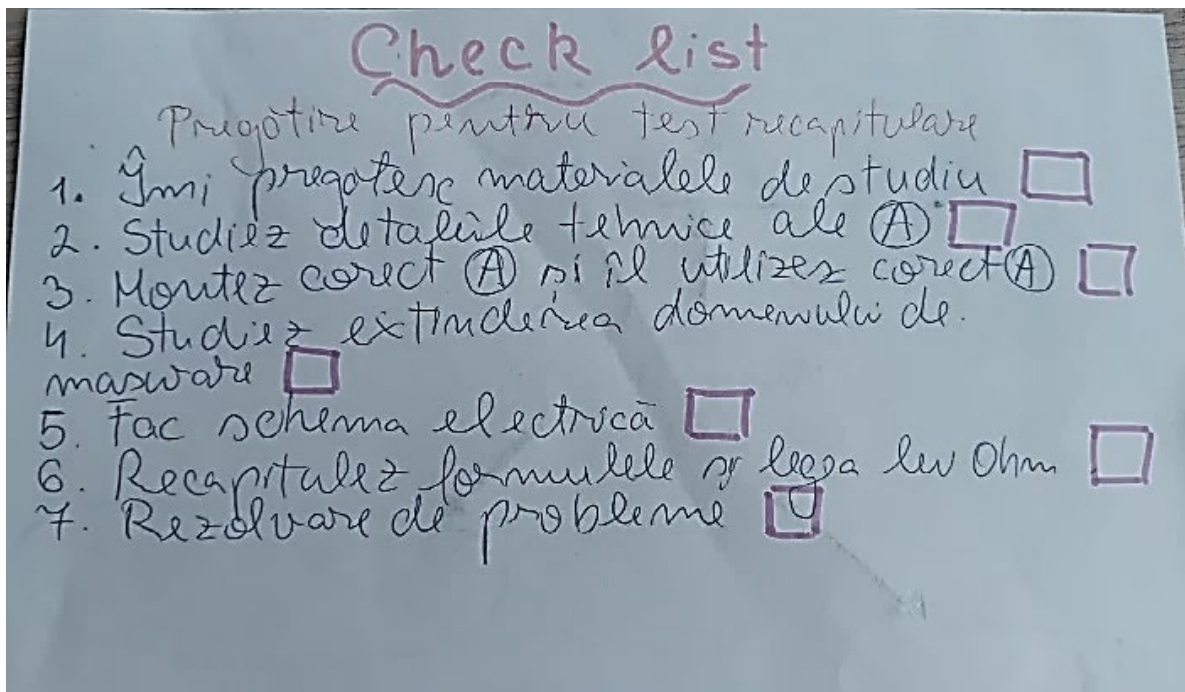 Check list
Pregătire pentru test recapitulare
1. Îmi pregătesc materialele de studiu
2. Studiez detaliile tehnice ale A
3. Montez corect A și îl utilizez corect A
4. Studiez extinderea domeniului de
masurare
5. Fac schema electrică
6. Recapitulez formulele și legea lui Ohm
7. Rezolvare de probleme